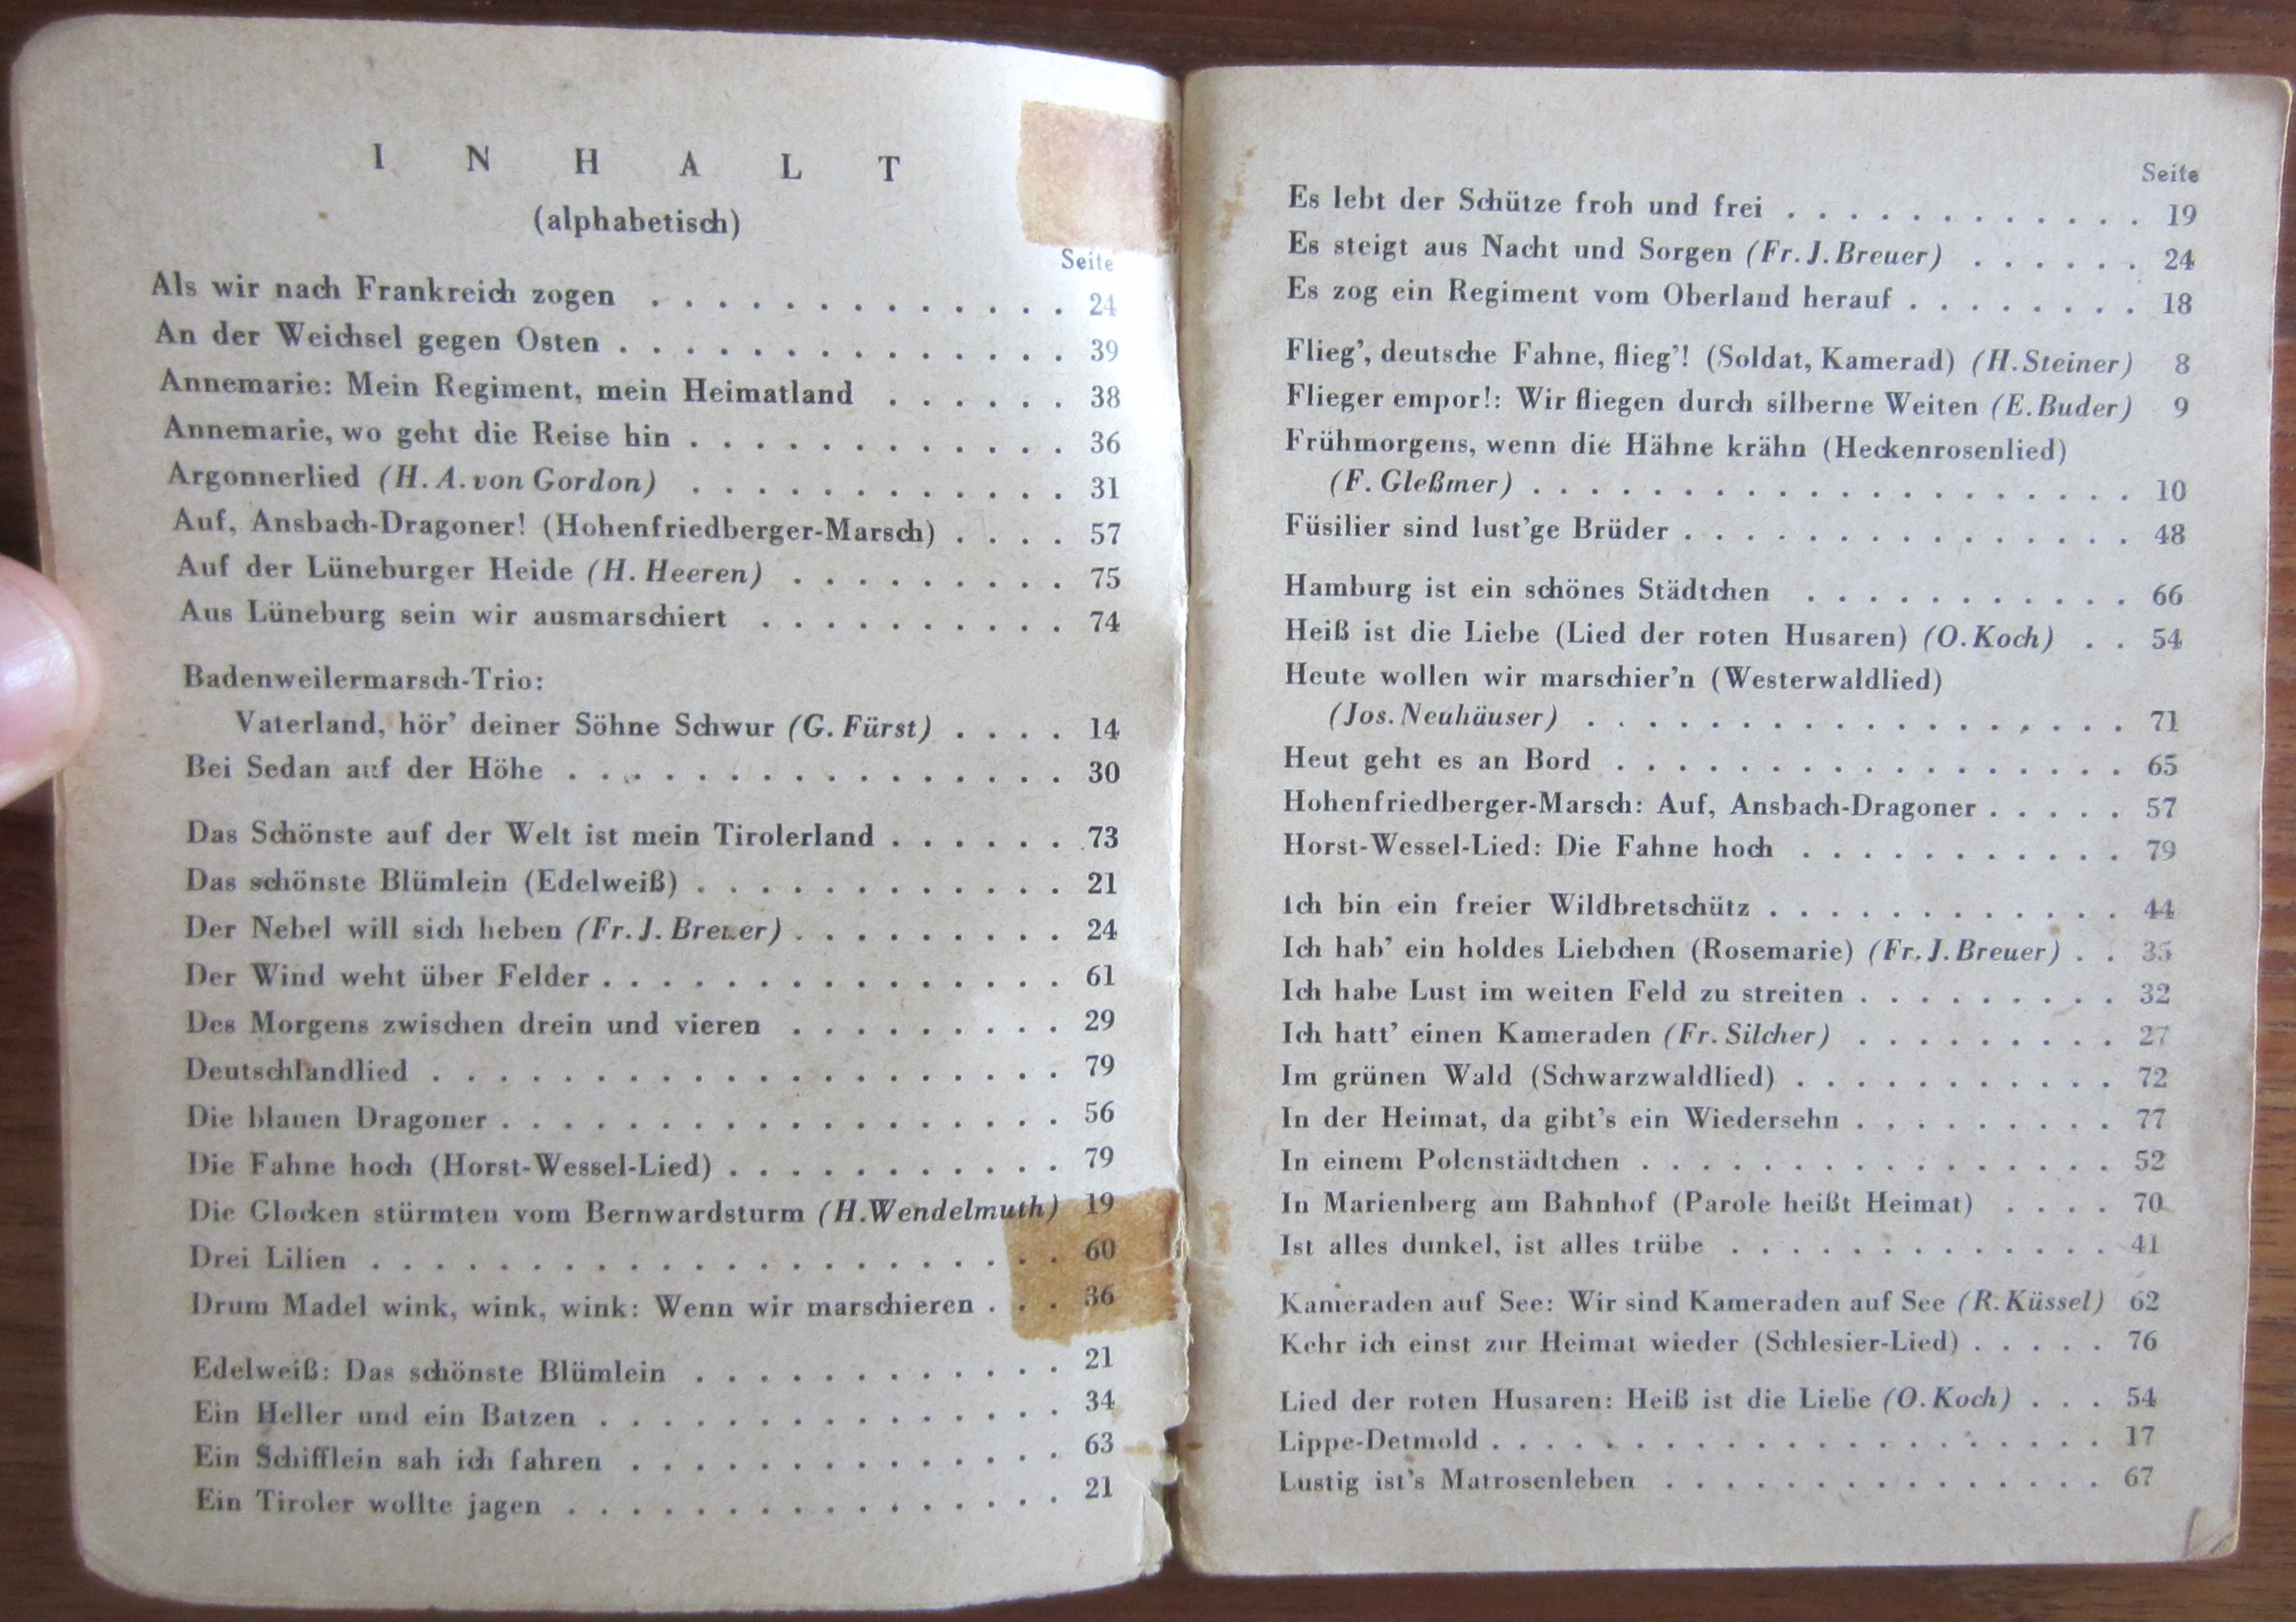 INHALT
(alphabetisch)
Seite
Als wir nach Frankreich zogen . . . . . . . . . . . . . 24
An der Weichsel gegen Osten . . . . . . . . . . . . . . 39
Annemarie: Mein Regiment, mein Heimatland . . . . . . 38
Annemarie, wo geht die Reise hin . . . . . . . . . . . . 36
Argonnerlied (H. A. von Gordon) . . . . . . . . . . . . 31
Auf, Ansbach-Dragoner! (Hohenfriedberger-Marsch) . . . . 57
Auf der Lüneburger Heide (H. Heeren) . . . . . . . . . 75
Aus Lüneburg sein wir ausmarschiert . . . . . . . . . . 74
Badenweilermarsch-Trio:
Vaterland, hör' deiner Söhne Schwur (G. Fürst) . . . . 14
Bei Sedan auf der Höhe . . . . . . . . . . . . . . . . 30
Das Schönste auf der Welt ist mein Tirolerland . . . . . . 73
Das schönste Blümlein (Edelweiß) . . . . . . . . . . . . 21
Der Nebel will sich heben (Fr. J. Breuer) . . . . . . . . . 24
Der Wind weht über Felder . . . . . . . . . . . . . . . 61
Des Morgens zwischen drein und vieren . . . . . . . . . 29
Deutschlandlied . . . . . . . . . . . . . . . . . . . . 79
Die blauen Dragoner . . . . . . . . . . . . . . . . . . 56
Die Fahne hoch (Horst-Wessel-Lied) . . . . . . . . . . . 79
Die Glocken stürmten vom Bernwardsturm (H. Wendelmuth) 19
Drei Lilien . . . . . . . . . . . . . . . . . . . . . . 60
Drum Madel wink, wink, wink: Wenn wir marschieren . . . 36
Edelweiß: Das schönste Blümlein . . . . . . . . . . . . 21
Ein Heller und ein Batzen . . . . . . . . . . . . . . . 34
Ein Schifflein sah ich fahren . . . . . . . . . . . . . . 63
Ein Tiroler wollte jagen . . . . . . . . . . . . . . . . 21
Seite
Es lebt der Schütze froh und frei . . . . . . . . . . . . 19
Es steigt aus Nacht und Sorgen (Fr. J. Breuer) . . . . . . 24
Es zog ein Regiment vom Oberland herauf . . . . . . . . 18
Flieg', deutsche Fahne, flieg'! (Soldat, Kamerad) (H. Steiner) 8
Flieger empor!: Wir fliegen durch silberne Weiten (E. Buder) 9
Frühmorgens, wenn die Hähne krähn (Heckenrosenlied)
(F. Gleßmer) . . . . . . . . . . . . . . . . . . . . 10
Füsilier sind lust'ge Brüder . . . . . . . . . . . . . . . 48
Hamburg ist ein schönes Städtchen . . . . . . . . . . . 66
Heiß ist die Liebe (Lied der roten Husaren) (O. Koch) . . 54
Heute wollen wir marschier'n (Westerwaldlied)
(Jos. Neuhäuser) . . . . . . . . . . . . . . . . . . 71
Heut geht es an Bord . . . . . . . . . . . . . . . . . 65
Hohenfriedberger-Marsch: Auf, Ansbach-Dragoner . . . . . 57
Horst-Wessel-Lied: Die Fahne hoch . . . . . . . . . . . 79
Ich bin ein freier Wildbretschütz . . . . . . . . . . . . 44
Ich hab' ein holdes Liebchen (Rosemarie) (Fr. J. Breuer) . . 35
Ich habe Lust im weiten Feld zu streiten . . . . . . . . . 32
Ich hatt' einen Kameraden (Fr. Silcher) . . . . . . . . . 27
Im grünen Wald (Schwarzwaldlied) . . . . . . . . . . . 72
In der Heimat, da gibt's ein Wiedersehn . . . . . . . . . 77
In einem Polenstädtchen . . . . . . . . . . . . . . . . 52
In Marienberg am Bahnhof (Parole heißt Heimat) . . . . 70
Ist alles dunkel, ist alles trübe . . . . . . . . . . . . . 41
Kameraden auf See: Wir sind Kameraden auf See (R. Küssel) 62
Kehr ich einst zur Heimat wieder (Schlesier-Lied) . . . . . 76
Lied der roten Husaren: Heiß ist die Liebe (O. Koch) . . . 54
Lippe-Detmold . . . . . . . . . . . . . . . . . . . . . 17
Lustig ist's Matrosenleben . . . . . . . . . . . . . . . 67